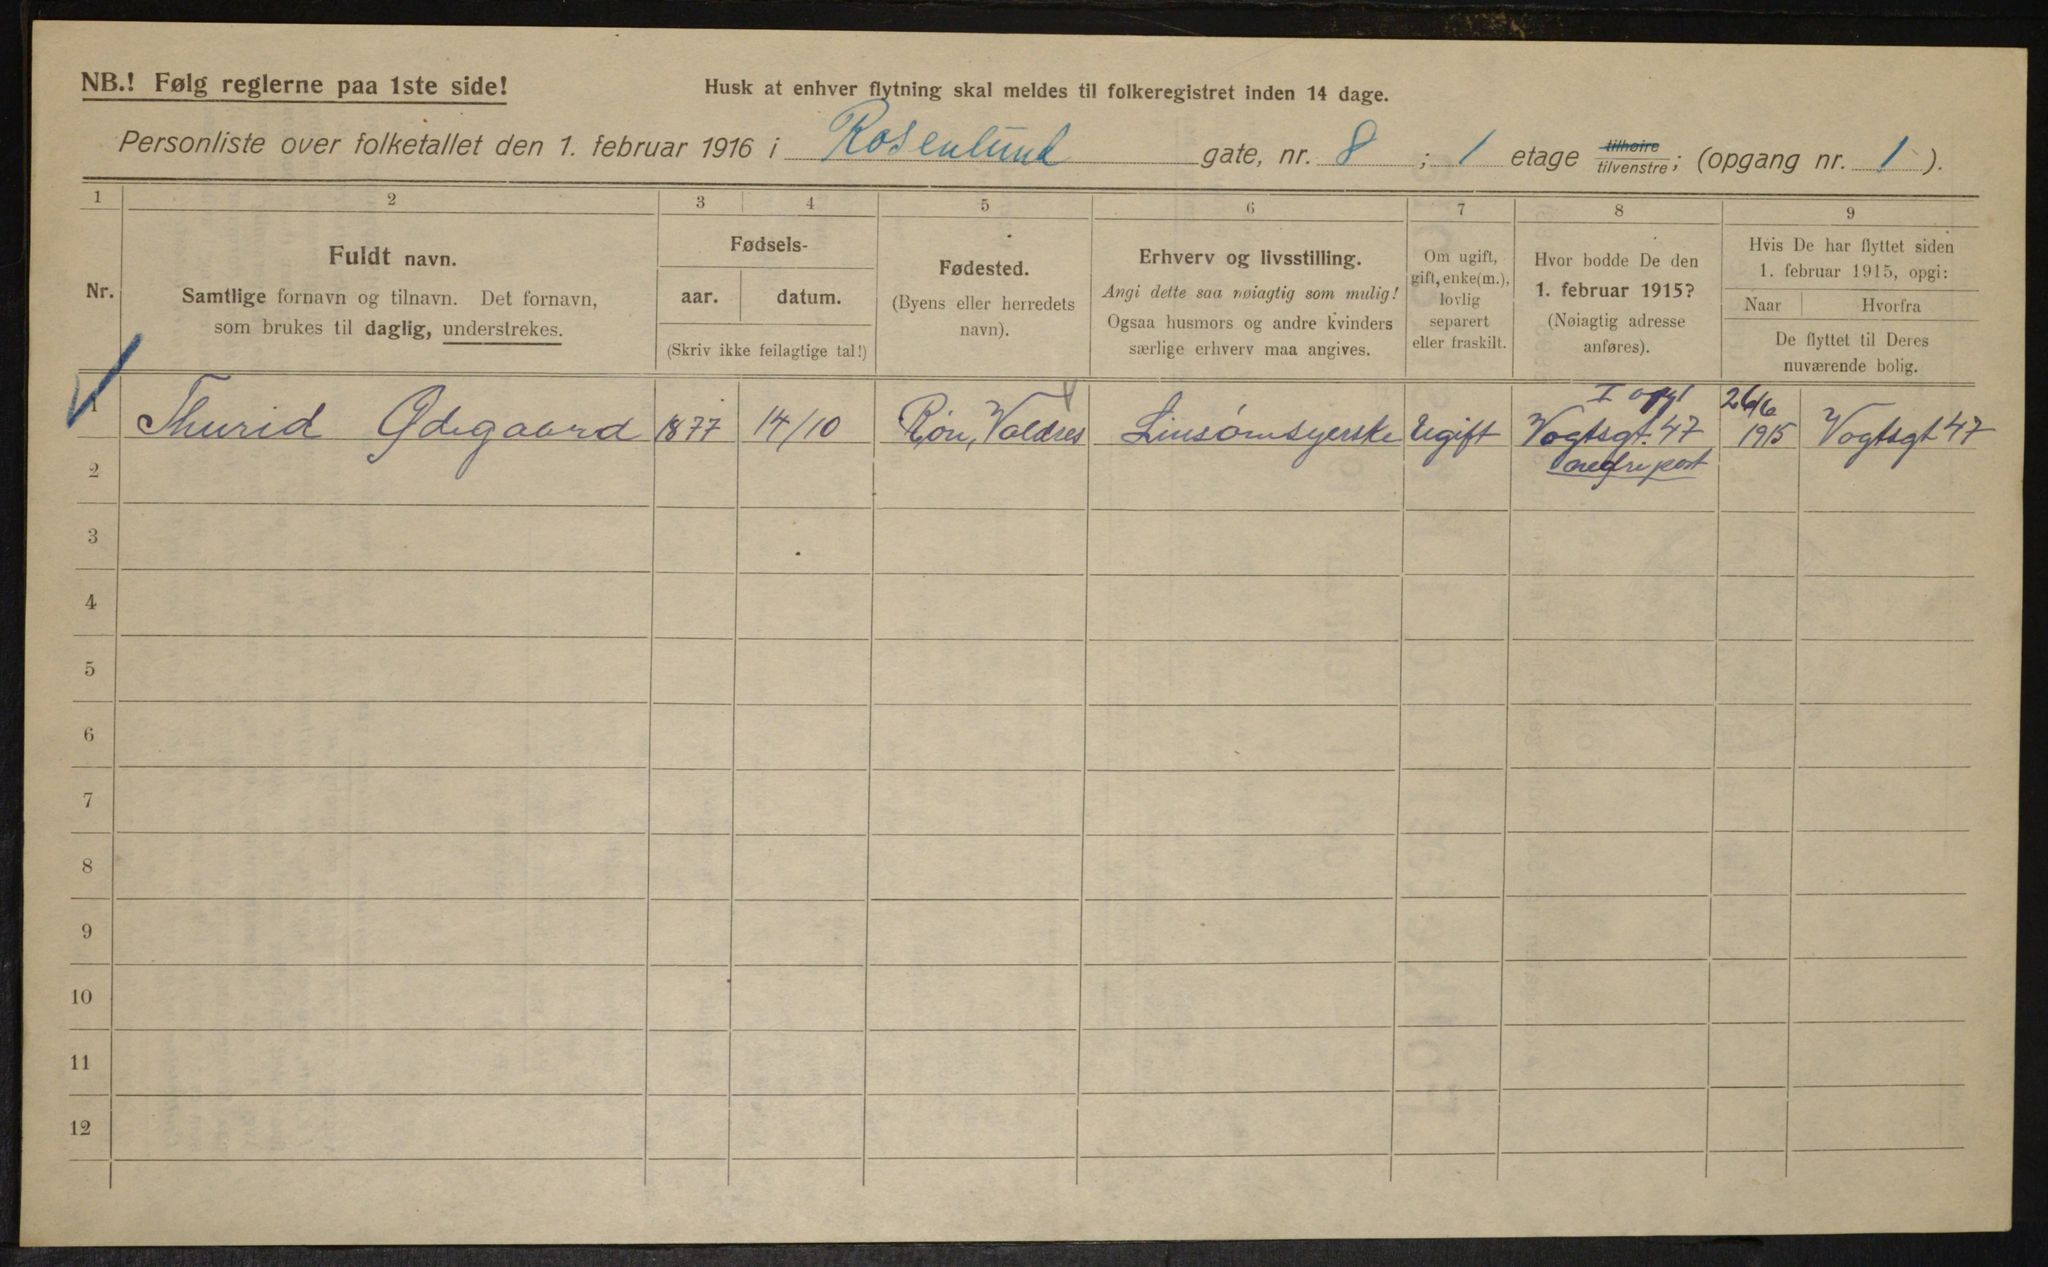 NB.! Følg reglerne paa 1ste side!
Husk at enhver flytning skal meldes til folkeregistret inden 14 dage.
Personliste over folketallet den 1. februar 1916 i Rosenlund gate, nr. 8 ; 1 etage tilhøire tilvenstre; (opgang nr. 1 ).
1 2 3 4 5 6 7 8 9
Nr.
Fuldt navn.
Samtlige fornavn og tilnavn. Det fornavn,
som brukes til daglig, understrekes.
Fødsels-
aar. datum.
(Skriv ikke feilagtige tal!)
Fødested.
(Byens eller herredets
navn).
Erhverv og livsstilling.
Angi dette saa nøiagtig som mulig!
Ogsaa husmors og andre kvinders
særlige erhverv maa angives.
Om ugift,
gift, enke(m.),
lovlig
separert
eller fraskilt.
Hvor bodde De den
1. februar 1915?
(Nøiagtig adresse
anføres).
Hvis De har flyttet siden
1. februar 1915, opgi:
Naar Hvorfra
De flyttet til Deres
nuværende bolig.
I opg
1 Thurid Ødegaard 1877 14/10 Røn, Valdres Linsømsyerske Ugift Vogtsgt. 47 26/6 1915 Vogtsgt 47
2
3
4
5
6
7
8
9
10
11
12